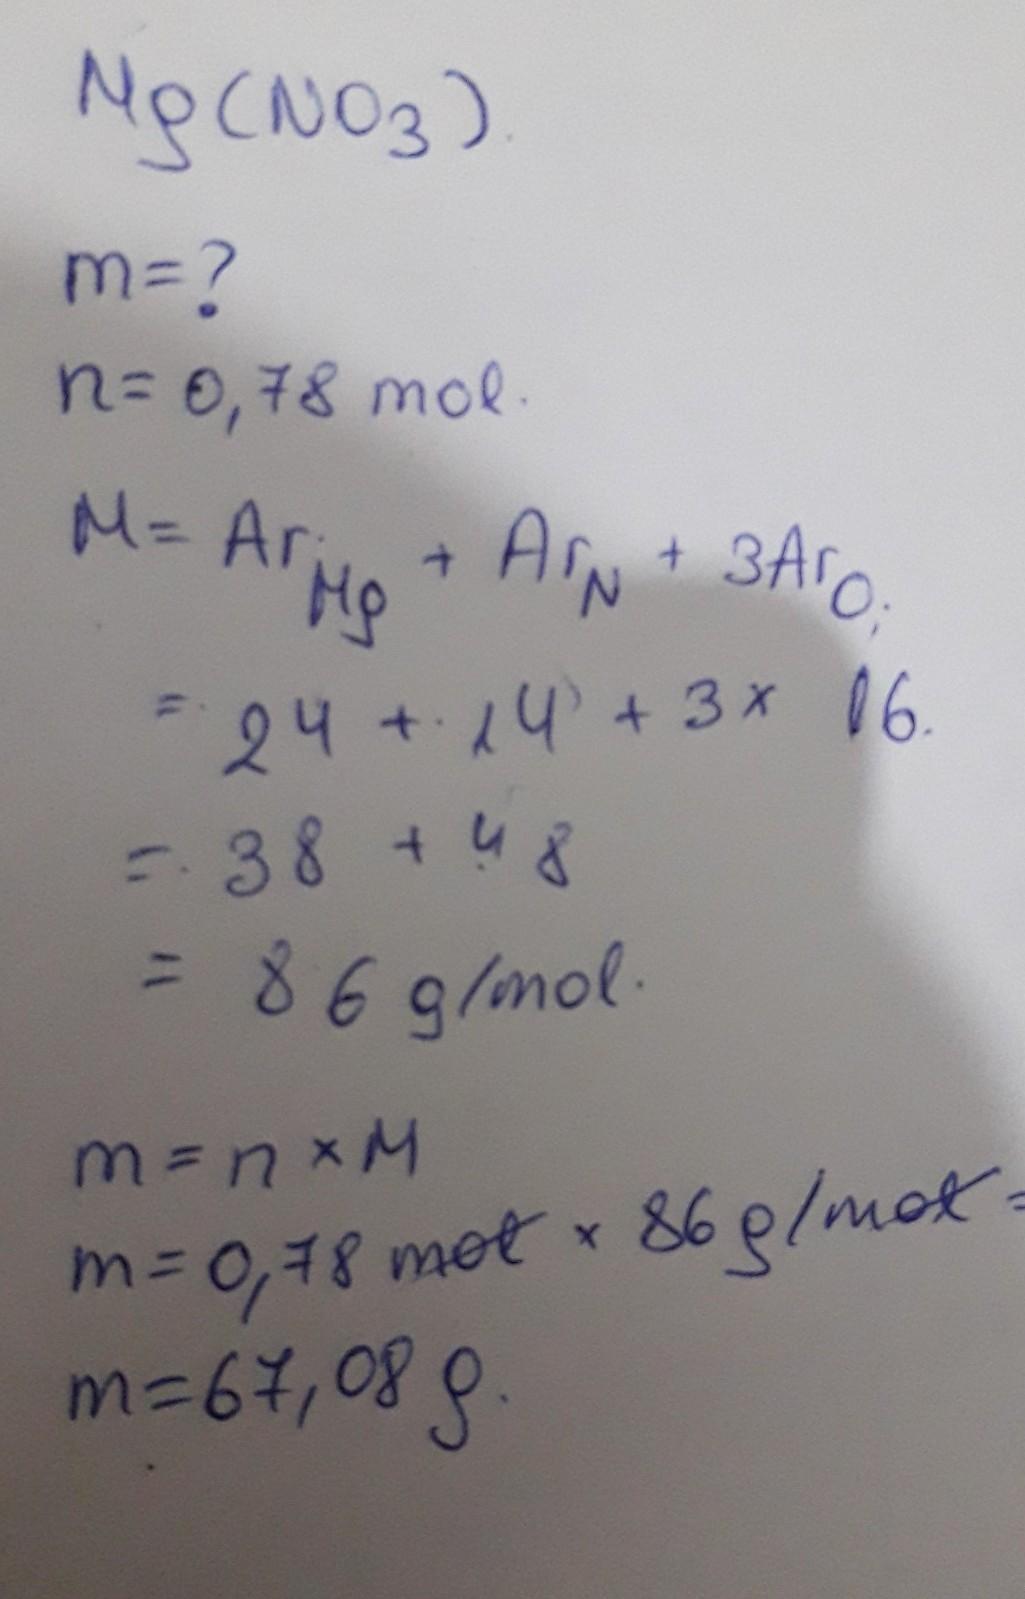 Mg(NO3).
m=?
n= 0,78 mol.
M= ArMg + ArN + 3ArO;
= 24 + 14 + 3x 16.
= 38 + 48
= 86 g/mol.
m = n x M
m= 0,78 mol x 86 g/mol =
m=67,08 g.